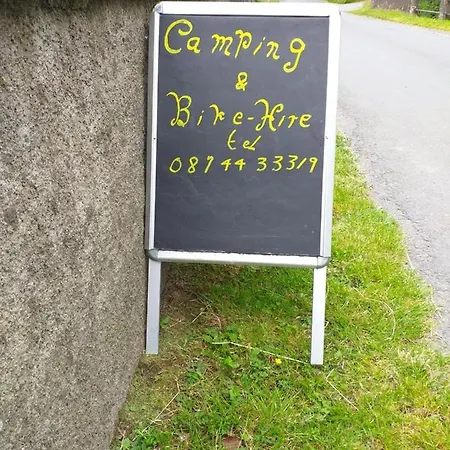 Camping
&
Bike-Hire
tel
0874433319